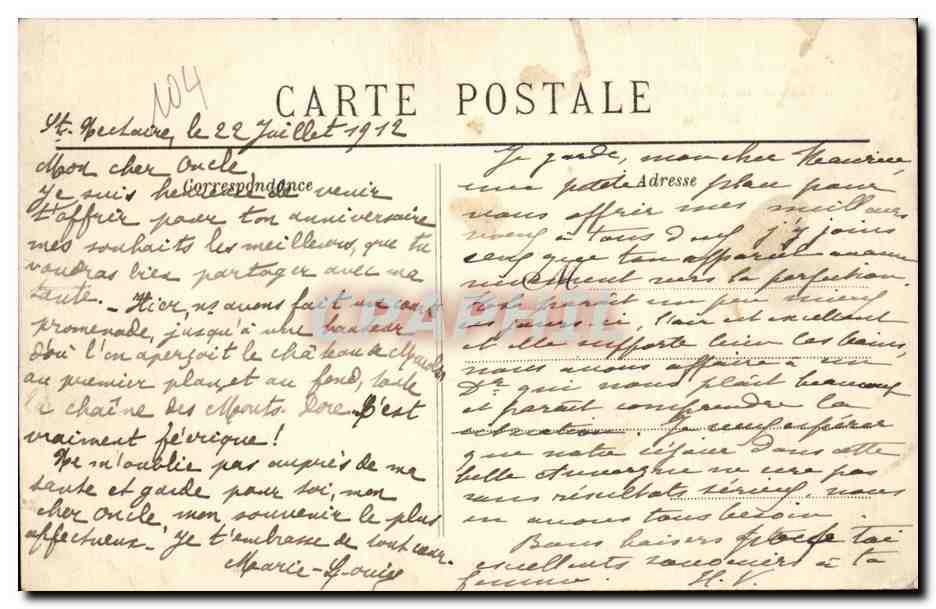 104
CARTE POSTALE
St. Nectaire, le 22 Juillet 1912
Mon cher Oncle
Correspondance
Je suis heureuse de venir
t'offrir pour ton anniversaire
mes souhaits les meilleurs, que tu
voudras bien partager avec ma
tante. - Hier, ns avons fait une
promenade, jusqu'à une hauteur
d'où l'on aperçoit le château de
au premier plan, et au fond, toute
la chaîne des Monts Dore. C'est
vraiment féerique!
Ne m'oublie pas auprès de ma
tante et garde pour toi, mon
cher Oncle, mon souvenir le plus
affectueux. Je t'embrasse de tout cœur.
Marie-Louise
Adresse
Je garde, mon cher Maurice,
une petite place pour
vous offrir mes meilleurs
voeux à tous deux j'y joins
ceux que ton appareil
vers la perfection.
un peu mieux
ces jours ci, l'air est excellent
et elle supporte bien les bains,
nous avons affaire à un
Dr qui nous plaît beaucoup
et paraît comprendre la
situation. Je veux espérer
que notre séjour dans cette
belle Auvergne ne sera pas
sans résultats sérieux, nous
en avons tous besoin.
Bons baisers pour toi
excellents souvenirs à ta
femme. H. V.
CPAPHIL